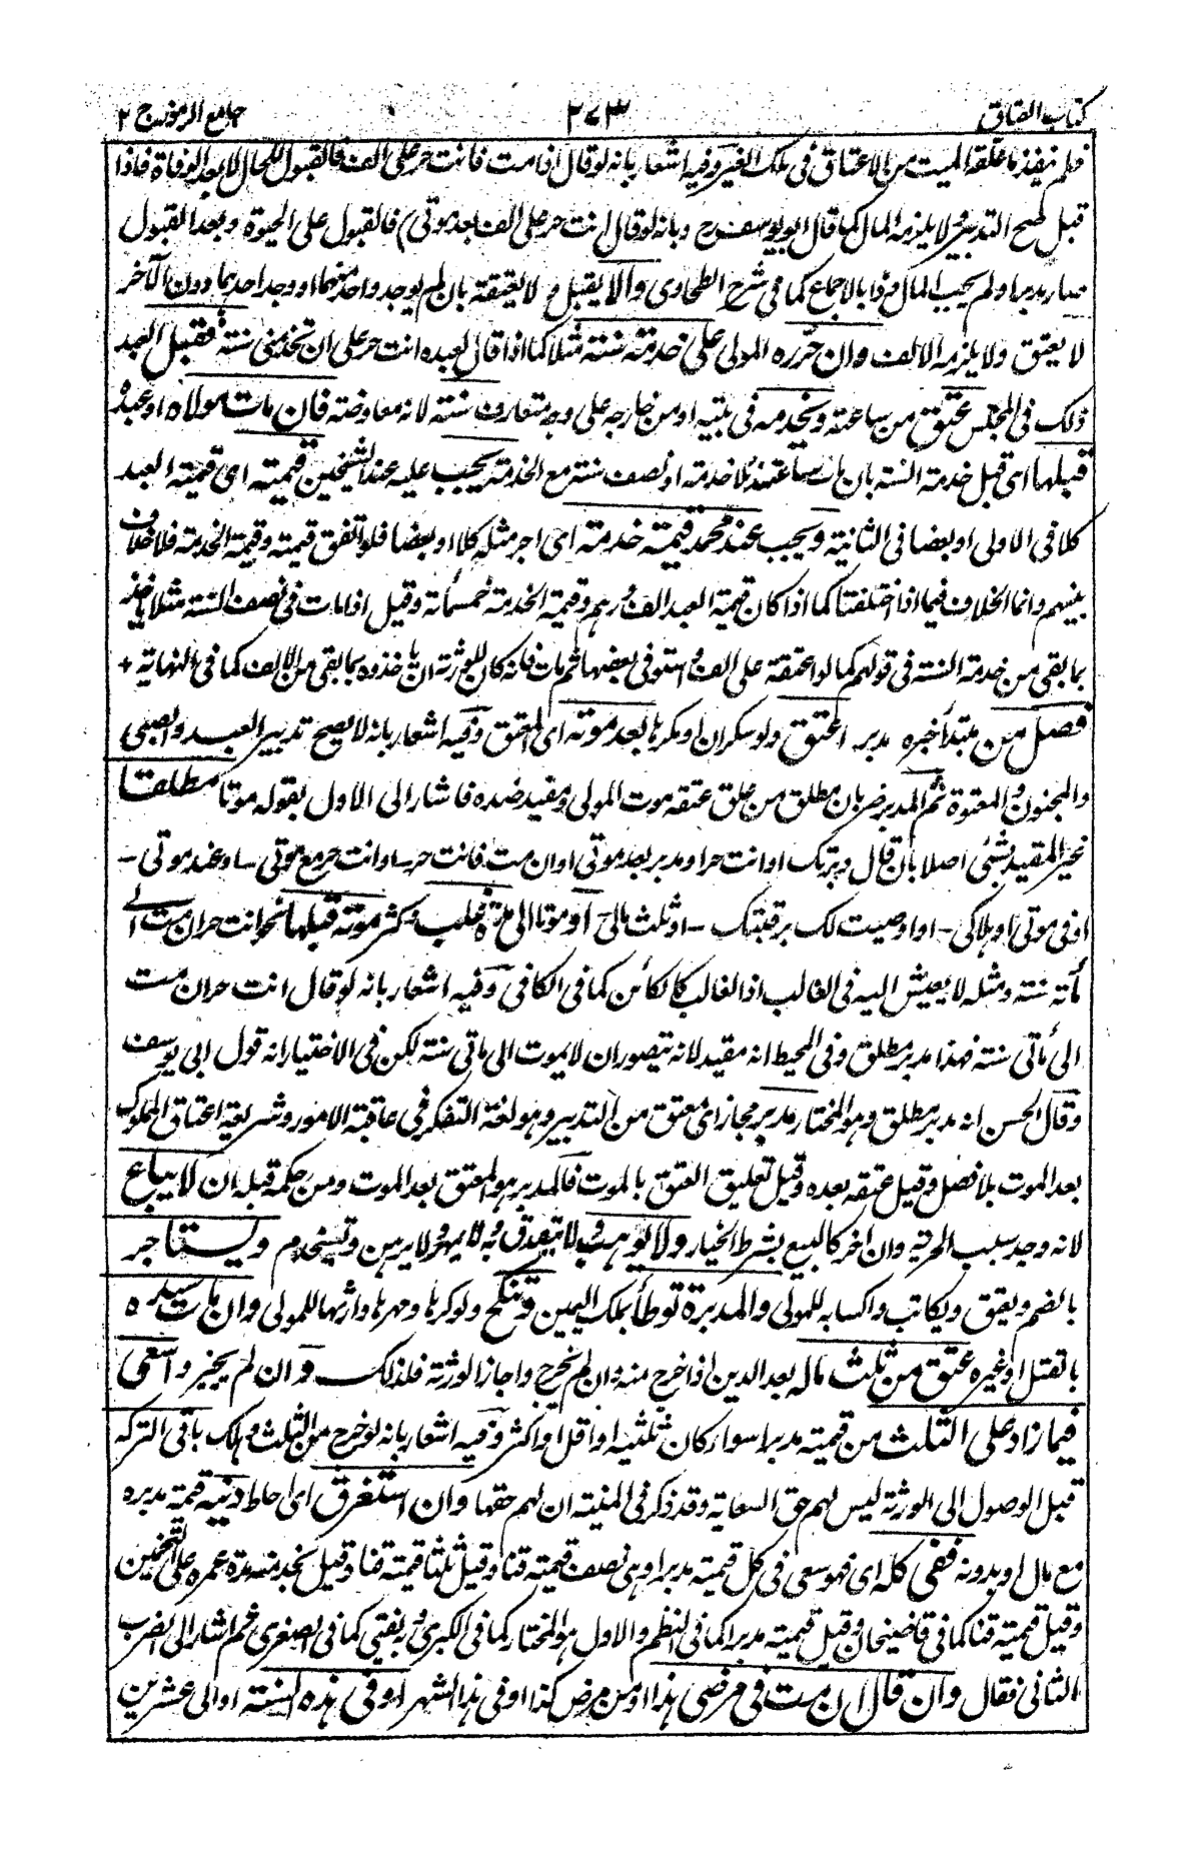 كتاب العتاق ٢٧٣ جامع الرموز ج ٢
فلم ينفذ ما علقه الميت من الاعتاق فى ملك الغير وفيه اشعار بانه لو قال اذا مت فانت حر على الف فالقبول للحال لا بعد الوفاة فاذا
قبل صح التدبير ولا يلزمه المال كما قال ابو يوسف رح وبانه لو قال انت حر على الف بعد موتى فالقبول على الحيوة وبعد القبول
صار مدبرا ولم يجب المال وذا بالاجماع كما فى شرح الطحاوى والا يقبل ولا يعتقه بان لم يوجد واحد منهما او وجد احدهما دون الآخر
لا يعتق ولا يلزمه الالف وان حرره المولى على خدمته سنة مثلا كما اذا قال لعبده انت حر على ان تخدمنى سنة فقبل العبد
ذلك فى المجلس عتق من ساعته ويخدمه فى بيته او من خارجه على وجه متعارف سنة لانه معاوضة فان مات مولاه او عبده
قبلها اى قبل خدمة السنة بان مات ساعتئذ بلا خدمة او نصف سنة مع الخدمة يجب عليه عند الشيخين قيمته اى قيمة العبد
كلا فى الاولى او بعضا فى الثانية ويجب عند محمد قيمة خدمته اى اجر مثله كلا او بعضا فلو اتفق قيمته وقيمة الخدمة فلا خلاف
بينهم وانما الخلاف فيما اذا اختلفتا كما اذا كان قيمة العبد الف درهم وقيمة الخدمة خمسمأة وقيل اذا مات فى نصف السنة مثلا ياخذ
بما بقى من خدمة السنة فى قولهم كما لو اعتقه على الف واستوفى بعضها ثم مات فانه كان للورثة ان ياخذوه بما بقى من الالف كما فى النهاية +
فصل من مبتدأ خبره مدبر اعتق ولو سكران او مكرها بعد موته اى المعتق وفيه اشعار بانه لا يصح تدبير العبد والصبى
والمجنون والمعتوه ثم المدبر ضربان مطلق من علق عتقه بموت المولى ومقيد ضده فاشار الى الاول بقوله موتا مطلقا
غير المقيد بشئ اصلا بان قال دبرتك او انت حر او مدبر بعد موتى او ان مت فانت حر ـ او انت حر مع موتى ـ او عند موتى ـ
او فى موتى او هلاكى ـ او اوصيت لك برقبتك ـ او ثلث مالى او موتا الى مدة غلب وكثر موته قبلها نحو انت حر ان مت الى
مأة سنة ومثله لا يعيش اليه فى الغالب اذ الغالب كالكائن كما فى الكافى وفيه اشعار بانه لو قال انت حر ان مت
الى مأتى سنة فهذا مدبر مطلق وفى المحيط انه مقيد لانه يتصور ان لا يموت الى مأتى سنة لكن فى الاختيار انه قول ابى يوسف
وقال الحسن انه مدبر مطلق وهو المختار مدبر مجاز اى معتق من التدبير وهو لغة التفكر فى عاقبة الامور وشريعة اعتاق المملوك
بعد الموت بلا فصل وقيل عتيقه بعده وقيل تعليق العتق بالموت فالمدبر هو المعتق بعد الموت ومن حكمه قبله ان لا يباع
لانه وجد سبب الحرية وان اخر كالبيع بشرط الخيار ولا يوهب ولا يتصدق به ولا يمهر ولا يرهن ويستخدم ويستاجر
بالضم ويعتق ويكاتب واكسابه للمولى والمدبرة توطأ بملك اليمين وتنكح ولو كرها ومهرها وارثها للمولى وان مات سيده
بالقتل او غيره عتق من ثلث ماله بعد الدين اذا خرج منه وان لم يخرج واجاز الورثة فلذلك وان لم يجيزوا سعى
فيما زاد على الثلث من قيمته مدبرا سواء كان ثلثيه او اقل او اكثر وفيه اشعار بانه لو خرج من الثلث وهلك باقى التركة
قبل الوصول الى الورثة ليس لهم حق السعاية وقد ذكر فى المنية ان لهم حقها وان استغرق اى احاط دينه قيمة مدبره
مع مال او بدونه ففى كله اى فهو سعى فى كل قيمته مدبرا وهى نصف قيمته قنا وقيل ثلثا قيمته قنا وقيل بخدمته مدة عمره على التخمين
وقيل قيمته قنا كما فى قاضيخان وقيل قيمته مدبرا كما فى النظم والاول هو المختار كما فى الكبرى وبه يفتى كما فى الصغرى ثم اشار الى الضرب
الثانى فقال وان قال ان مت فى مرضى هذا او من مرض كذا او فى هذا الشهر او فى هذه السنة او الى عشرين